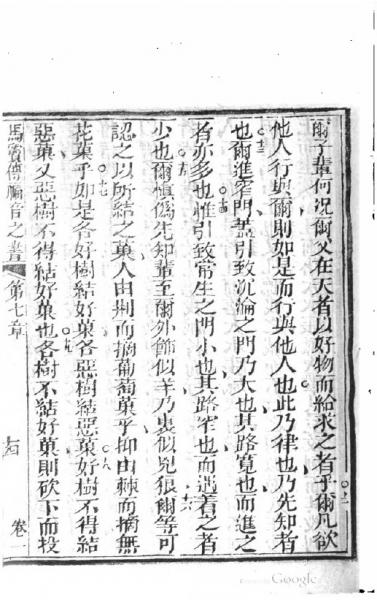 爾子輩何況爾父在天者以好物而給求之者乎爾凡欲
他人行與爾則如是而行與他人也此乃律也乃先知者
也爾進窄門蓋引致沉淪之門乃大也其路寬也而進之
者亦多也惟引致常生之門小也其路窄也而遇着之者
少也爾慎偽先知輩至爾外飾似羊乃裏似兇狼爾等可
認之以所結之菓人由荆而摘葡萄菓乎抑由棘而摘無
花菓乎如是各好樹結好菓各惡樹結惡菓好樹不得結
惡菓又惡樹不得結好菓也各樹不結好菓則砍下而投
馬竇傳福音之書 第七章 卷一
Google